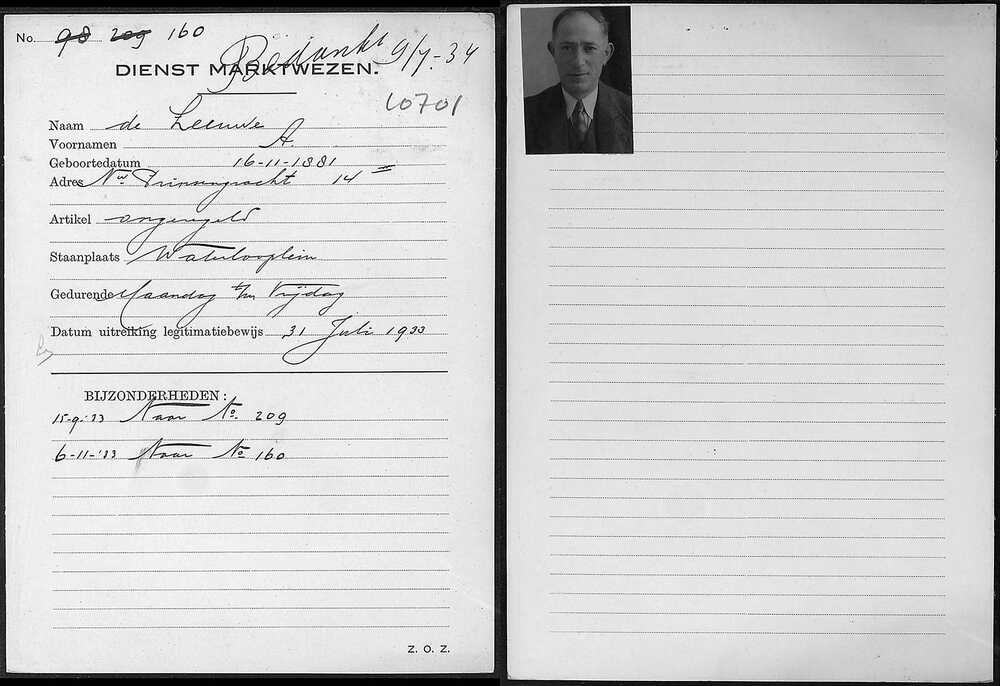 No. 98 209 160
Bedankt 9/7.-34
DIENST MARKTWEZEN.
10701
Naam de Leeuwe
Voornamen A.
Geboortedatum 16-11-1881
Adres Nw. Prinsengracht 14 II
Artikel ongeregeld
Staanplaats Waterlooplein
Gedurende Maandag t/m Vrijdag
Datum uitreiking legitimatiebewijs 31 Juli 1933
BIJZONDERHEDEN:
15-9-'33 Naar No. 209
6-11-'33 Naar No 160
Z. O. Z.